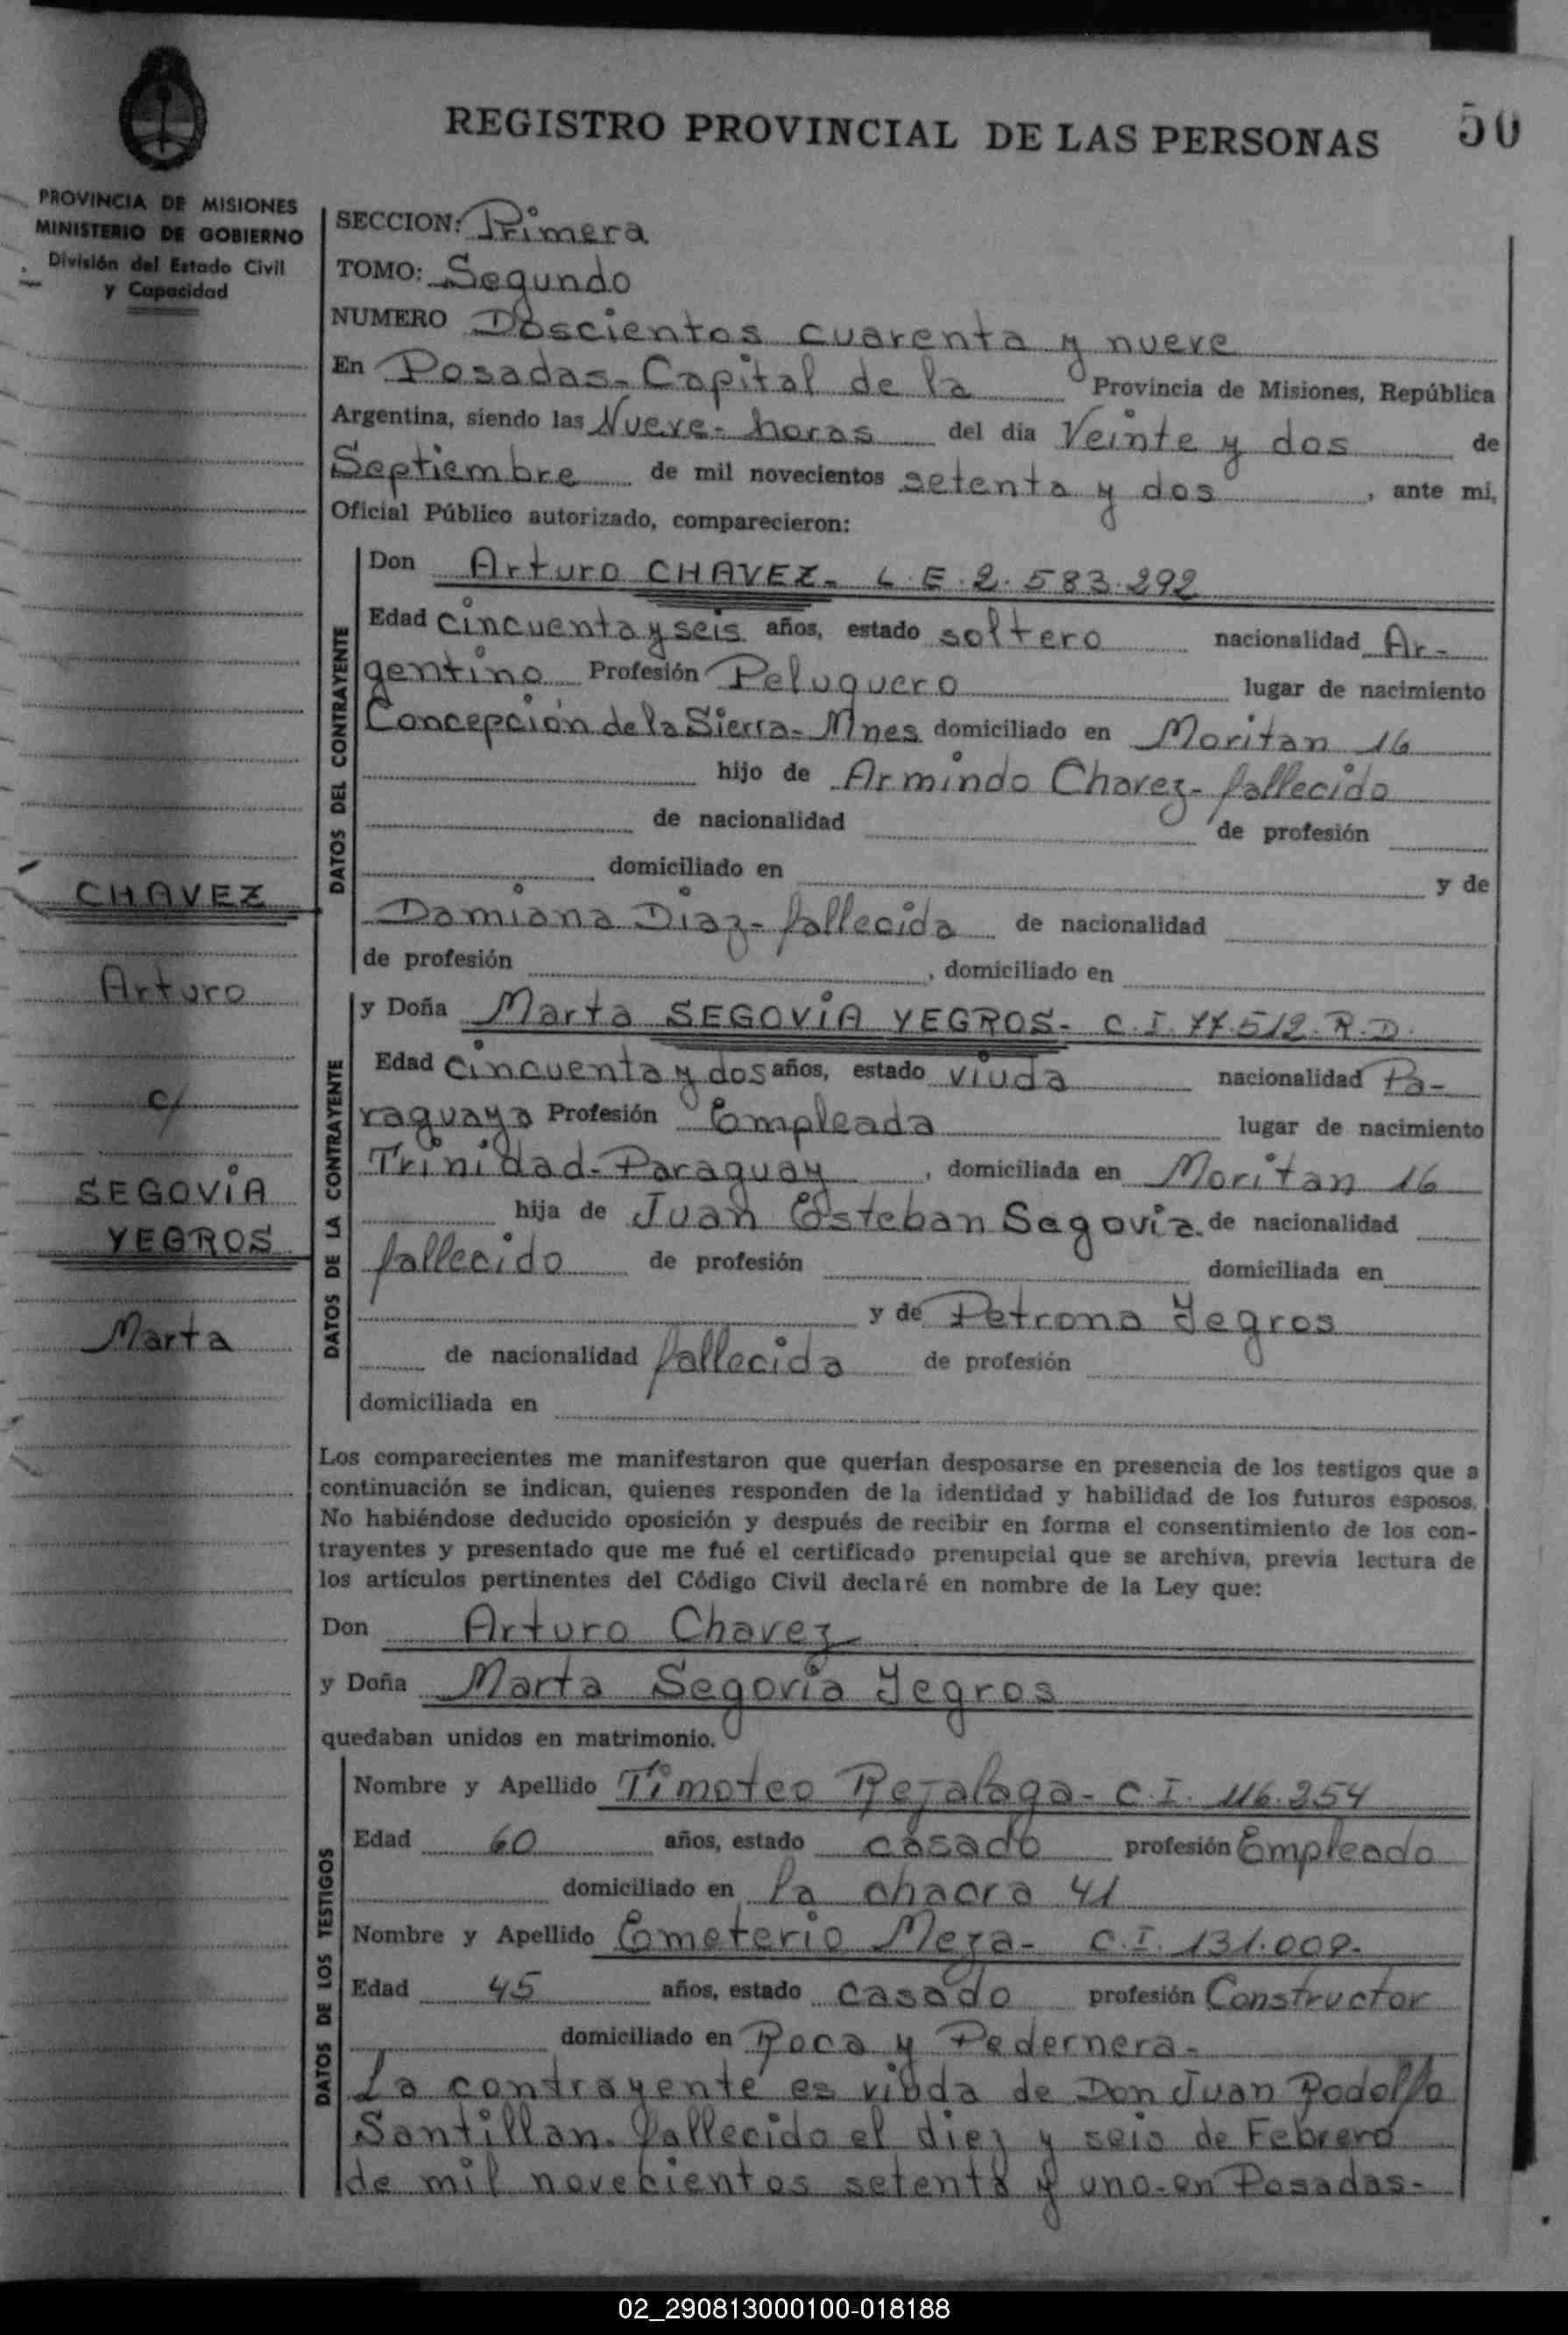 REGISTRO PROVINCIAL DE LAS PERSONAS 50
PROVINCIA DE MISIONES
MINISTERIO DE GOBIERNO
División del Estado Civil
y Capacidad
SECCION: Primera
TOMO: Segundo
NUMERO Doscientos cuarenta y nueve
En Posadas - Capital de la Provincia de Misiones, República
Argentina, siendo las Nueve - horas del día Veinte y dos de
Septiembre de mil novecientos setenta y dos, ante mi,
Oficial Público autorizado, comparecieron:
DATOS DEL CONTRAYENTE
Don Arturo CHAVEZ - L.E. 2.583.292
Edad cincuenta y seis años, estado soltero nacionalidad Ar-
gentino Profesión Peluquero lugar de nacimiento
Concepción de la Sierra - Mnes domiciliado en Moritan 16
hijo de Armindo Chavez - fallecido
de nacionalidad de profesión
domiciliado en y de
Damiana Diaz - fallecida de nacionalidad
de profesión , domiciliado en
CHAVEZ
Arturo
c/
SEGOVIA
YEGROS
Marta
DATOS DE LA CONTRAYENTE
y Doña Marta SEGOVIA YEGROS - C.I. 77.512. R.D.
Edad cincuenta y dos años, estado viuda nacionalidad Pa-
raguaya Profesión Empleada lugar de nacimiento
Trinidad - Paraguay , domiciliada en Moritan 16
hija de Juan Esteban Segovia. de nacionalidad
fallecido de profesión domiciliada en
y de Petrona Yegros
de nacionalidad fallecida de profesión
domiciliada en
Los comparecientes me manifestaron que querían desposarse en presencia de los testigos que a
continuación se indican, quienes responden de la identidad y habilidad de los futuros esposos.
No habiéndose deducido oposición y después de recibir en forma el consentimiento de los con-
trayentes y presentado que me fué el certificado prenupcial que se archiva, previa lectura de
los artículos pertinentes del Código Civil declaré en nombre de la Ley que:
Don Arturo Chavez
y Doña Marta Segovia Yegros
quedaban unidos en matrimonio.
DATOS DE LOS TESTIGOS
Nombre y Apellido Timoteo Rejalaga - C.I. 116.254
Edad 60 años, estado casado profesión Empleado
domiciliado en la chacra 41
Nombre y Apellido Emeterio Meza - C.I. 131.009.
Edad 45 años, estado casado profesión Constructor
domiciliado en Roca y Pedernera -
La contrayente es viuda de Don Juan Rodolfo
Santillan. fallecido el diez y seis de Febrero
de mil novecientos setenta y uno - en Posadas -
02_290813000100-018188